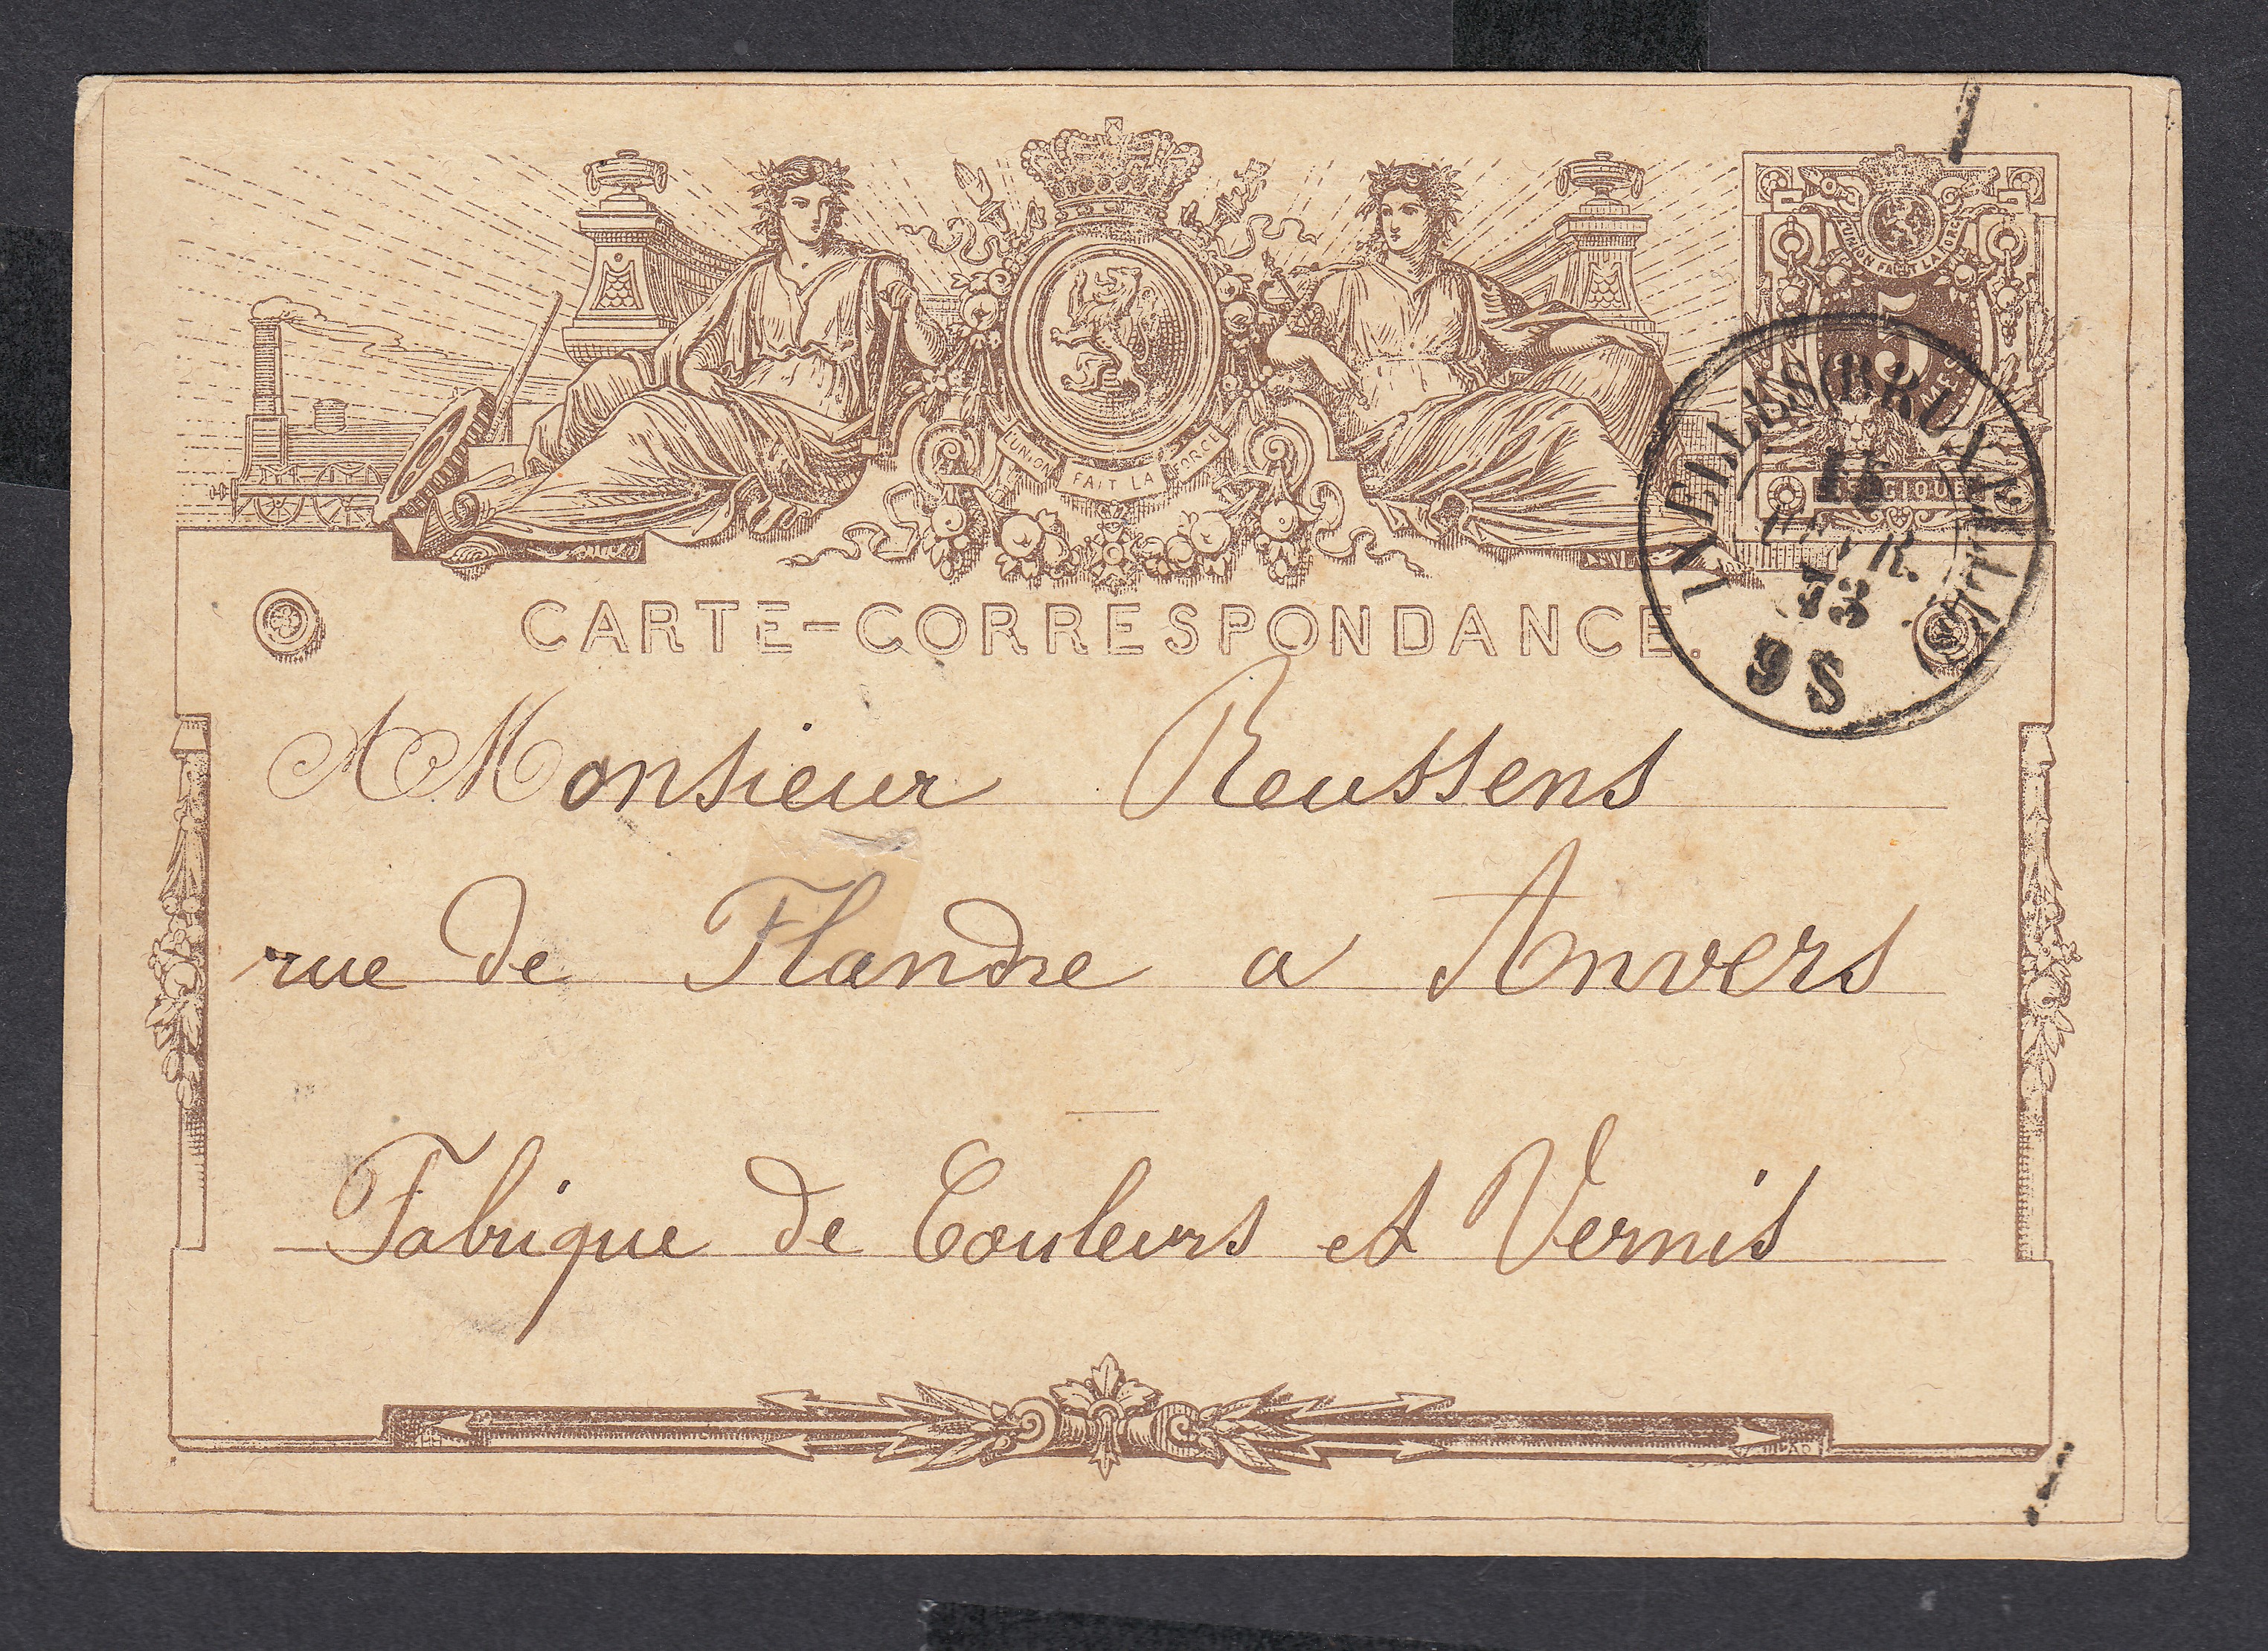 L'UNION FAIT LA FORCE
L'UNION FAIT LA FORCE
5
BELGIQUE
IXELLES (BRUXELLES)
15
73
9 S
CARTE-CORRESPONDANCE.
A Monsieur Reussens
rue de Flandre a Anvers
Fabrique de Couleurs et Vernis